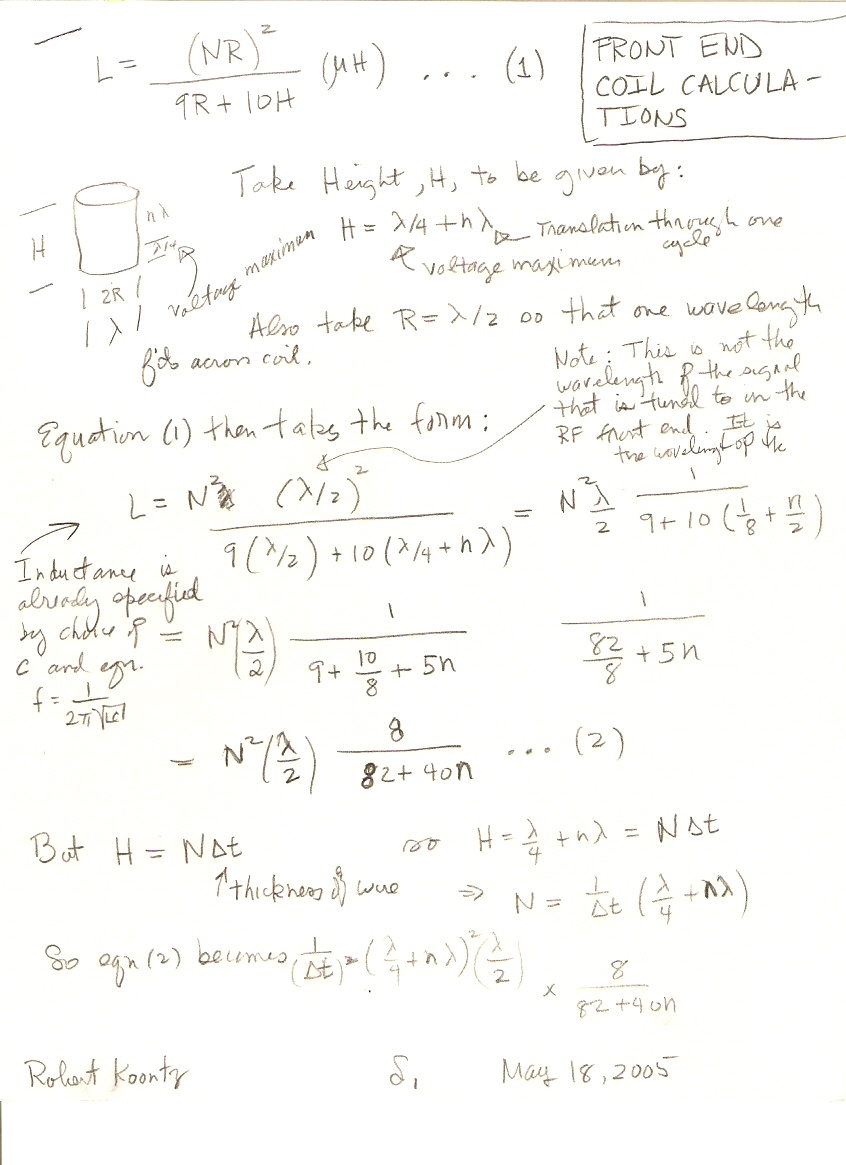 L = (NR)² / 9R + 10H (μH) ... (1)
FRONT END
COIL CALCULA-
TIONS
Take Height, H, to be given by:
H
nλ
λ/4
2R
λ
voltage maximum
H = λ/4 + nλ
Translation through one
cycle
voltage maximum
Also take R = λ/2 so that one wavelength
fits across coil.
Note: This is not the
wavelength of the signal
that is tuned to in the
RF front end. It is
the wavelength of the
Equation (1) then takes the form:
L = N² (λ/2)² / 9(λ/2) + 10(λ/4 + nλ) = N² λ/2 1 / 9 + 10(1/8 + n/2)
Inductance is
already specified
by choice of
C and eqn.
f = 1 / 2π√LC
= N²(λ/2) 1 / 9 + 10/8 + 5n
1 / 82/8 + 5n
= N²(λ/2) 8 / 82 + 40n ... (2)
But H = NΔt so H = λ/4 + nλ = NΔt
↑ thickness of wire ⇒ N = 1/Δt (λ/4 + nλ)
So eqn (2) becomes 1/(Δt)² (λ/4 + nλ)² (λ/2)
× 8 / 82 + 40n
Robert Koontz δ₁ May 18, 2005